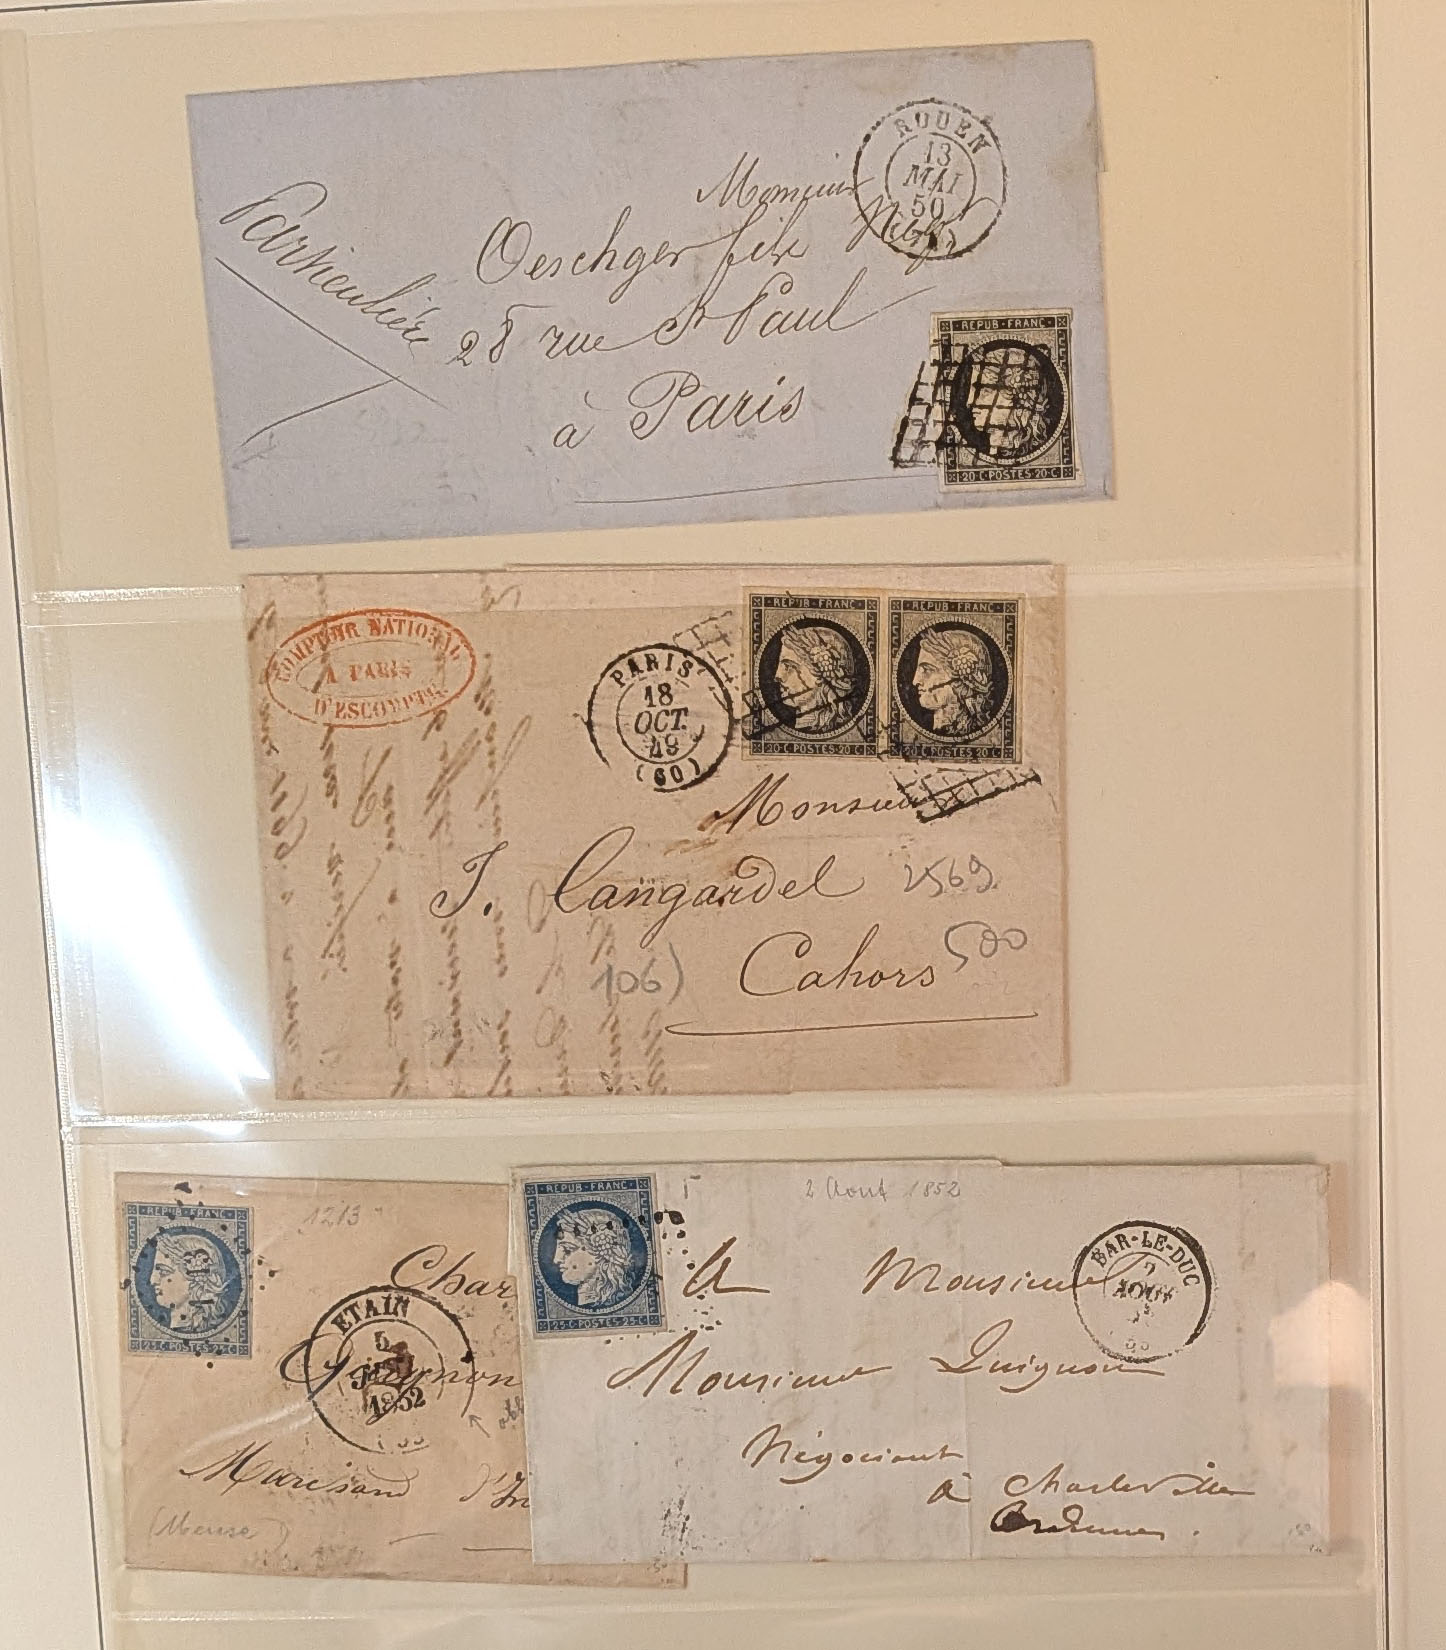 ROUEN
13
MAI
50
(74)
Monsieur
Oeschger fils
28 rue St Paul
à Paris
Particulière
REPUB·FRANC
20·C·POSTES·20·C
COMPTOIR NATIONAL
A PARIS
D'ESCOMPTE
PARIS
18
OCT.
49
(60)
REPUB·FRANC
20·C·POSTES·20·C
REPUB·FRANC
20·C·POSTES·20·C
Monsieur
J. Cangardel
2569
Cahors
500
106)
REPUB·FRANC
25·C·POSTES·25·C
1213
Char
ETAIN
5
1852
Marchand
(Meuse)
REPUB·FRANC
25·C·POSTES·25·C
2 Aout 1852
BAR-LE-DUC
2
AOUT
A Monsieur
Monsieur Quignon
Négociant
à Charleville
Ardennes.